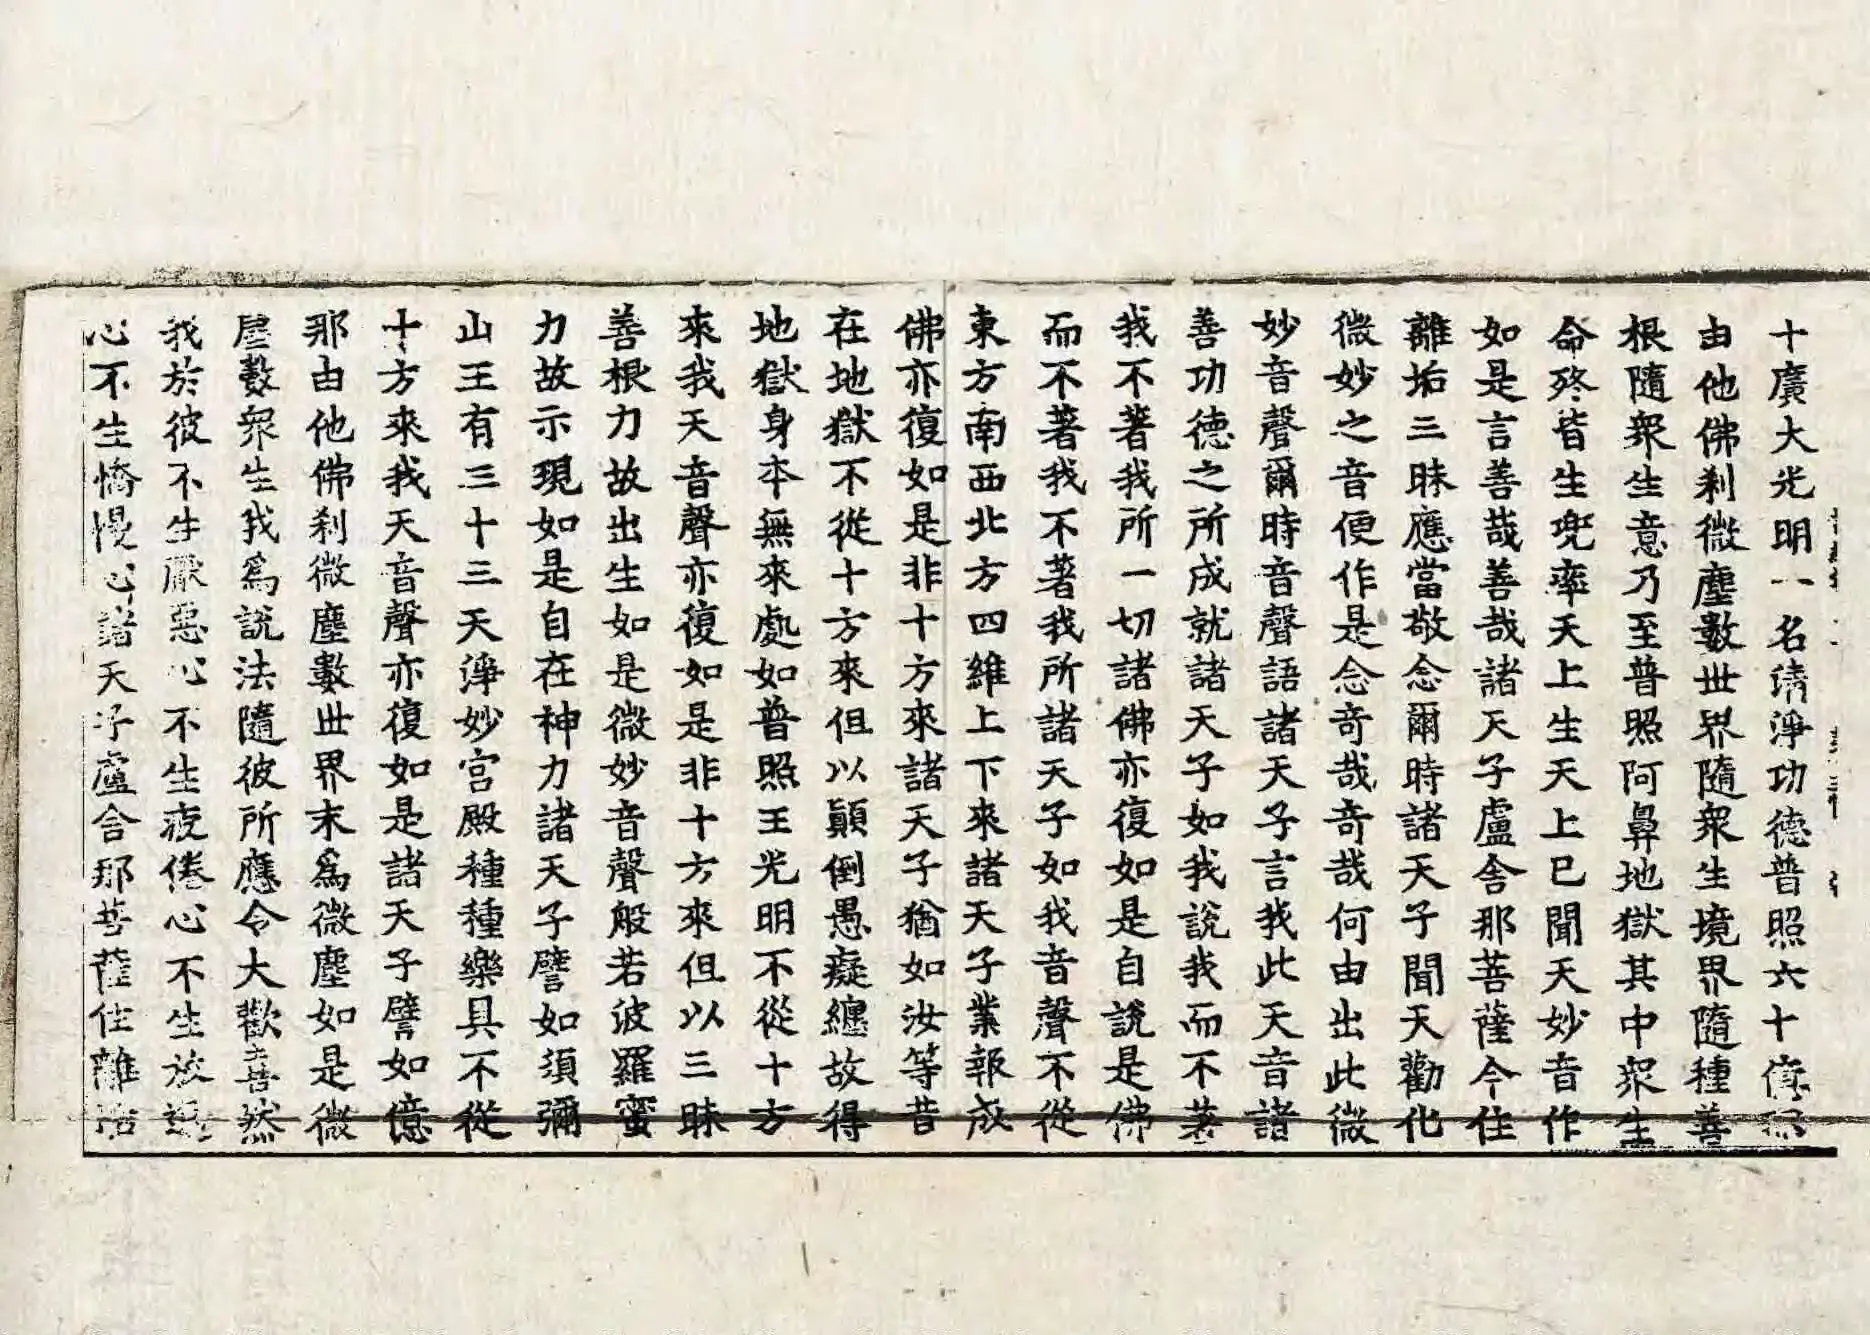 十廣大光明一一名清淨功德普照六十億
由他佛刹微塵數世界隨衆生境界隨種善
根隨衆生意乃至普照阿鼻地獄其中衆生
命終皆生兜率天上生天上已聞天妙音作
如是言善哉善哉諸天子盧舍那菩薩今住
離垢三昧應當敬念爾時諸天子聞天勸化
微妙之音便作是念奇哉奇哉何由出此微
妙音聲爾時音聲語諸天子言我此天音諸
善功德之所成就諸天子如我說我而不著
我不著我所一切諸佛亦復如是自說是佛
而不著我不著我所諸天子如我音聲不從
東方南西北方四維上下來諸天子業報成
佛亦復如是非十方來諸天子猶如汝等昔
在地獄不從十方來但以顚倒愚癡纏故得
地獄身本無來處如普照王光明不從十方
來我天音聲亦復如是非十方來但以三昧
善根力故出生如是微妙音聲般若波羅蜜
力故示現如是自在神力諸天子譬如須彌
山王有三十三天淨妙宮殿種種樂具不從
十方來我天音聲亦復如是諸天子譬如億
那由他佛刹微塵數世界末爲微塵如是微
塵數衆生我爲說法隨彼所應令大歡喜然
我於彼不生厭惡心不生疲倦心不生放逸
心不生憍慢心諸天子盧舍那菩薩住離垢